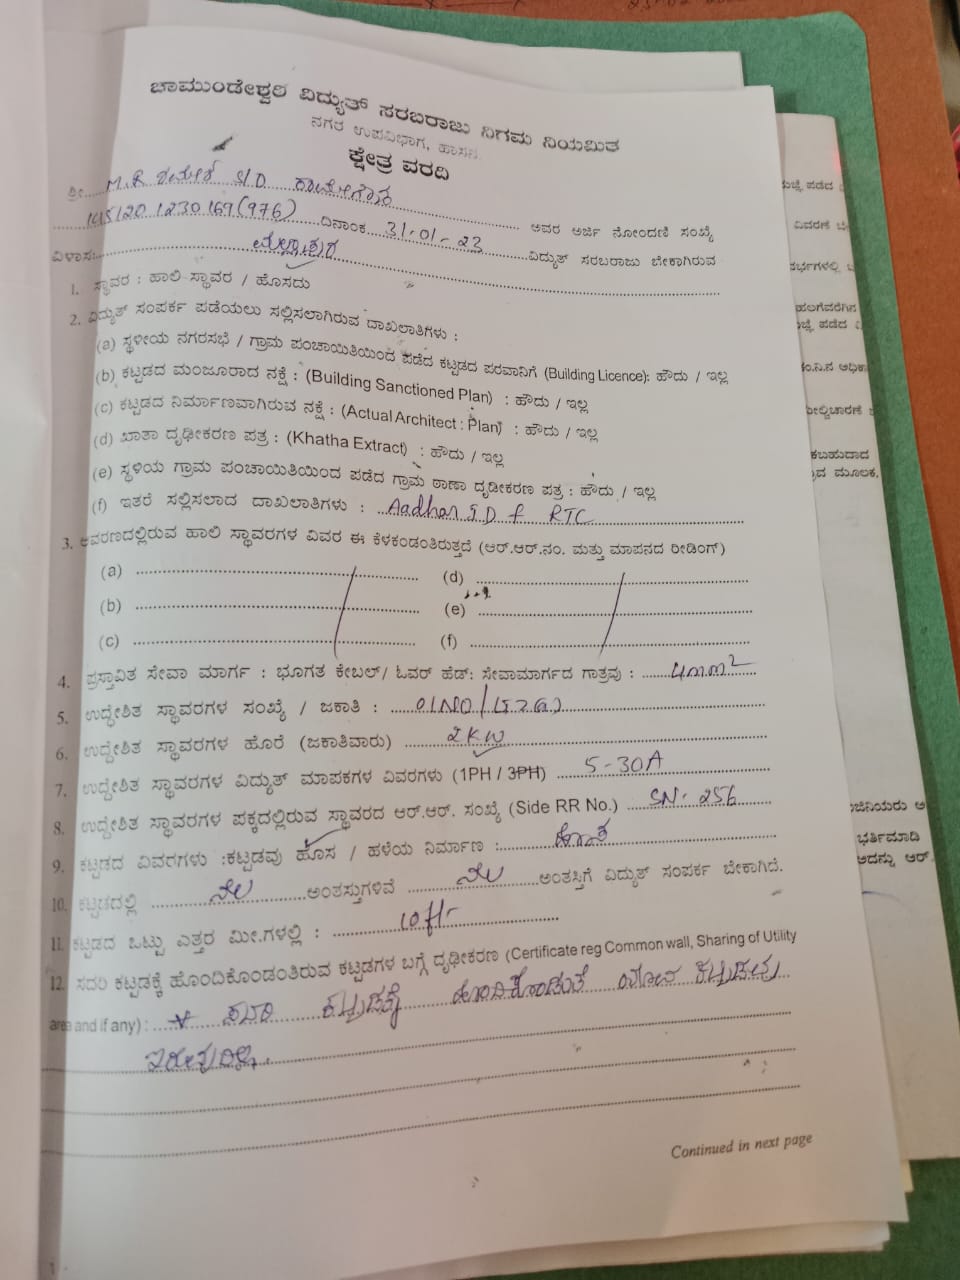 ಚಾಮುಂಡೇಶ್ವರಿ ವಿದ್ಯುತ್ ಸರಬರಾಜು ನಿಗಮ ನಿಯಮಿತ
ನಗರ ಉಪವಿಭಾಗ, ಹಾಸನ
ಕ್ಷೇತ್ರ ವರದಿ
ಶ್ರೀ M.R ರಮೇಶ S/O ರಾಮೇಗೌಡ
ಅವರ ಅರ್ಜಿ ನೋಂದಣಿ ಸಂಖ್ಯೆ
(976) ದಿನಾಂಕ 31-01-23 ವಿದ್ಯುತ್ ಸರಬರಾಜು ಬೇಕಾಗಿರುವ
ವಿಳಾಸ:
1. ಸ್ಥಾವರ : ಹಾಲಿ ಸ್ಥಾವರ / ಹೊಸದು
2. ವಿದ್ಯುತ್ ಸಂಪರ್ಕ ಪಡೆಯಲು ಸಲ್ಲಿಸಲಾಗಿರುವ ದಾಖಲಾತಿಗಳು :
(a) ಸ್ಥಳೀಯ ನಗರಸಭೆ / ಗ್ರಾಮ ಪಂಚಾಯಿತಿಯಿಂದ ಪಡೆದ ಕಟ್ಟಡದ ಪರವಾನಿಗೆ (Building Licence): ಹೌದು / ಇಲ್ಲ
(b) ಕಟ್ಟಡದ ಮಂಜೂರಾದ ನಕ್ಷೆ : (Building Sanctioned Plan) : ಹೌದು / ಇಲ್ಲ
(c) ಕಟ್ಟಡದ ನಿರ್ಮಾಣವಾಗಿರುವ ನಕ್ಷೆ : (Actual Architect : Plan) : ಹೌದು / ಇಲ್ಲ
(d) ಖಾತಾ ದೃಢೀಕರಣ ಪತ್ರ : (Khatha Extract) : ಹೌದು / ಇಲ್ಲ
(e) ಸ್ಥಳಿಯ ಗ್ರಾಮ ಪಂಚಾಯಿತಿಯಿಂದ ಪಡೆದ ಗ್ರಾಮ ಠಾಣಾ ದೃಡೀಕರಣ ಪತ್ರ : ಹೌದು / ಇಲ್ಲ
(f) ಇತರೆ ಸಲ್ಲಿಸಲಾದ ದಾಖಲಾತಿಗಳು : Aadhar I.D f RTC
3. ಆವರಣದಲ್ಲಿರುವ ಹಾಲಿ ಸ್ಥಾವರಗಳ ವಿವರ ಈ ಕೆಳಕಂಡಂತಿರುತ್ತದೆ (ಆರ್.ಆರ್.ನಂ. ಮತ್ತು ಮಾಪನದ ರೀಡಿಂಗ್)
(a) (d)
(b) (e)
(c) (f)
4. ಪ್ರಸ್ತಾವಿತ ಸೇವಾ ಮಾರ್ಗ : ಭೂಗತ ಕೇಬಲ್/ ಓವರ್ ಹೆಡ್: ಸೇವಾಮಾರ್ಗದ ಗಾತ್ರವು : 4mm²
5. ಉದ್ಧೇಶಿತ ಸ್ಥಾವರಗಳ ಸಂಖ್ಯೆ / ಜಕಾತಿ :
6. ಉದ್ದೇಶಿತ ಸ್ಥಾವರಗಳ ಹೊರೆ (ಜಕಾತಿವಾರು) 2KW
7. ಉದ್ದೇಶಿತ ಸ್ಥಾವರಗಳ ವಿದ್ಯುತ್ ಮಾಪಕಗಳ ವಿವರಗಳು (1PH / 3PH) 5-30A
8. ಉದ್ದೇಶಿತ ಸ್ಥಾವರಗಳ ಪಕ್ಕದಲ್ಲಿರುವ ಸ್ಥಾವರದ ಆರ್.ಆರ್. ಸಂಖ್ಯೆ (Side RR No.) SN. 256
9. ಕಟ್ಟಡದ ವಿವರಗಳು :ಕಟ್ಟಡವು ಹೊಸ / ಹಳೆಯ ನಿರ್ಮಾಣ : ಹೊಸ
10. ಕಟ್ಟಡದಲ್ಲಿ ನೆಲ ಅಂತಸ್ತುಗಳಿವೆ ನೆಲ ಅಂತಸ್ತಿಗೆ ವಿದ್ಯುತ್ ಸಂಪರ್ಕ ಬೇಕಾಗಿದೆ.
11. ಕಟ್ಟಡದ ಒಟ್ಟು ಎತ್ತರ ಮೀ.ಗಳಲ್ಲಿ : 10ft-
12. ಸದರಿ ಕಟ್ಟಡಕ್ಕೆ ಹೊಂದಿಕೊಂಡಂತಿರುವ ಕಟ್ಟಡಗಳ ಬಗ್ಗೆ ದೃಢೀಕರಣ (Certificate reg Common wall, Sharing of Utility
area and if any) : ಸದರಿ ಕಟ್ಟಡಕ್ಕೆ ಹೊಂದಿಕೊಂಡಂತೆ ಯಾವ ಕಟ್ಟಡವು
ಇರುವುದಿಲ್ಲ.
Continued in next page